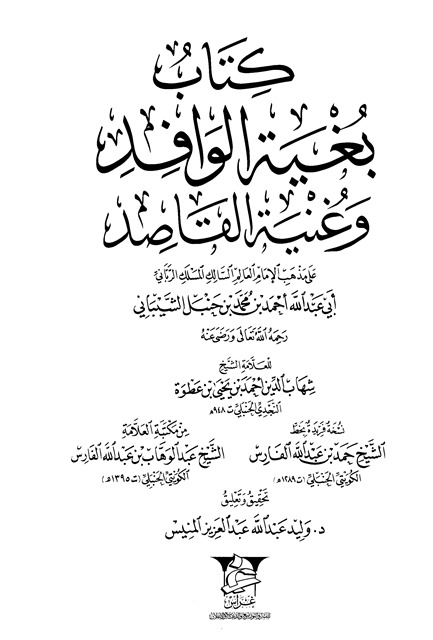 كِتَابُ
بُغْيَةِ الوَافِدِ
وَغُنْيَةِ القَاصِدِ
عَلَى مَذْهَبِ الإِمَامِ العَالِمِ السَّالِكِ المَسْلَكَ الرَّبَّانِيَّ
أَبِي عَبْدِ اللَّهِ أَحْمَدَ بْنِ مُحَمَّدِ بْنِ حَنْبَلٍ الشَّيْبَانِيِّ
رَحِمَهُ اللَّهُ تَعَالَى وَرَضِيَ عَنْهُ
لِلعَلَّامَةِ الشَّيْخِ
شِهَابِ الدِّينِ أَحْمَدَ بْنِ يَحْيَى بْنِ عَطْوَةَ
النَّجْدِيِّ الحَنْبَلِيِّ ت ٩٤٨هـ
نُسْخَةٌ فَرِيدَةٌ بِخَطِّ
الشَّيْخِ حَمَدِ بْنِ عَبْدِ اللَّهِ الفَارِسِ
الكُوَيْتِيِّ الحَنْبَلِيِّ (ت ١٢٨٩هـ)
مِنْ مَكْتَبَةِ العَلَّامَةِ
الشَّيْخِ عَبْدِ الوَهَّابِ بْنِ عَبْدِ اللَّهِ الفَارِسِ
الكُوَيْتِيِّ الحَنْبَلِيِّ (ت ١٣٩٥هـ)
تَحْقِيقُ وَتَعْلِيقُ
د. وَلِيد عَبْدِ اللَّهِ عَبْدِ العَزِيزِ المُنَيِّس
غراس